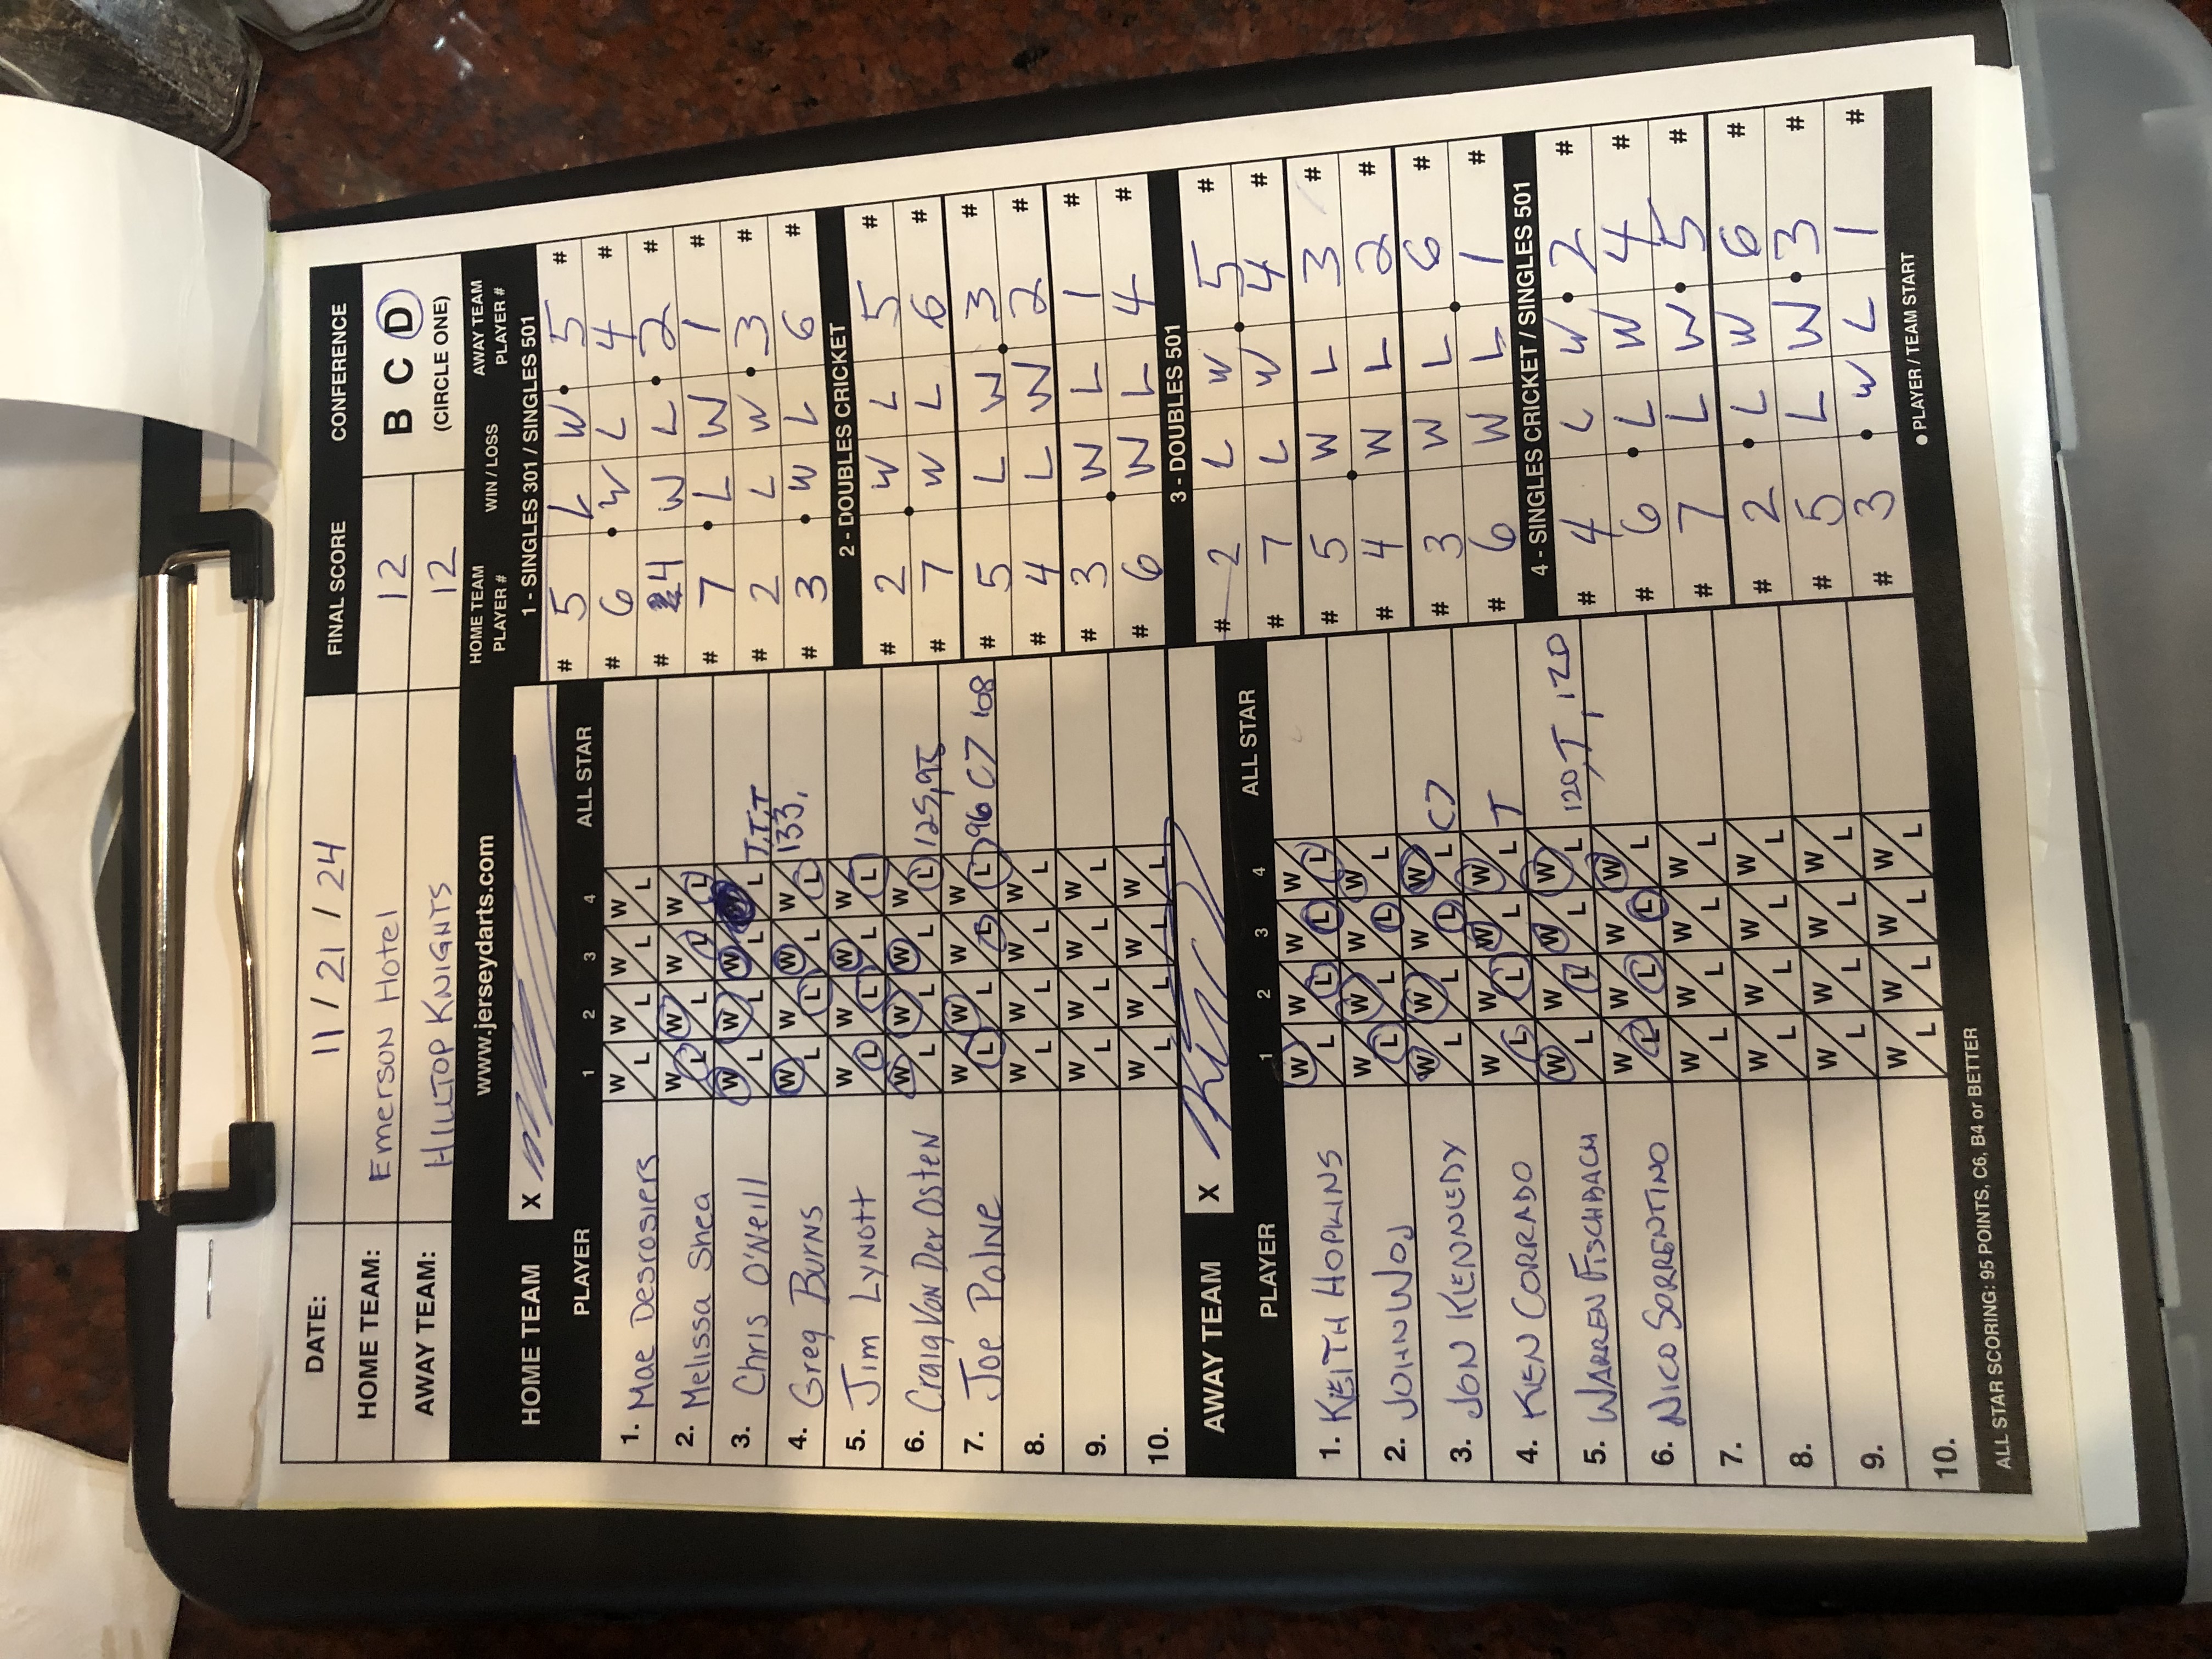 DATE: 11 / 21 / 24 FINAL SCORE CONFERENCE
HOME TEAM: Emerson Hotel 12 B C D
AWAY TEAM: HILLTOP KNIGHTS 12 (CIRCLE ONE)
www.jerseydarts.com
HOME TEAM X
PLAYER 1 2 3 4 ALL STAR
1. Mae Desrosiers W L W L W L W L
2. Melissa Shea W L W L W L W L
3. Chris O'Neill W L W L W L W L T,T,T
4. Greg Burns W L W L W L W L 133,
5. Jim Lynott W L W L W L W L
6. Craig Von Der Osten W L W L W L W L 125,95
7. Joe Polne W L W L W L W L 96 C7 108
8. W L W L W L W L
9. W L W L W L W L
10. W L W L W L W L
AWAY TEAM X
PLAYER 1 2 3 4 ALL STAR
1. KEITH HOPKINS W L W L W L W L
2. JOHN WOJ W L W L W L W L
3. JON KENNEDY W L W L W L W L C7
4. KEN CORRADO W L W L W L W L T
5. WARREN FISCHBACH W L W L W L W L 120,T,120
6. NICO SORRENTINO W L W L W L W L
7. W L W L W L W L
8. W L W L W L W L
9. W L W L W L W L
10. W L W L W L W L
ALL STAR SCORING: 95 POINTS, C6, B4 or BETTER
HOME TEAM PLAYER # WIN / LOSS AWAY TEAM PLAYER #
1 - SINGLES 301 / SINGLES 501
# 5 L W • 5 #
# 6 • W L 4 #
# 4 W L • 2 #
# 7 • L W 1 #
# 2 L W • 3 #
# 3 • W L 6 #
2 - DOUBLES CRICKET
# 2 W L 5 #
# 7 • W L 6 #
# 5 L W 3 #
# 4 L W • 2 #
# 3 W L 1 #
# 6 • W L 4 #
3 - DOUBLES 501
# 2 L W 5 #
# 7 L W • 4 #
# 5 W L 3 #
# 4 • W L 2 #
# 3 W L 6 #
# 6 W L • 1 #
4 - SINGLES CRICKET / SINGLES 501
# 4 L W • 2 #
# 6 • L W 4 #
# 7 L W • 5 #
# 2 • L W 6 #
# 5 L W • 3 #
# 3 • W L 1 #
• PLAYER / TEAM START